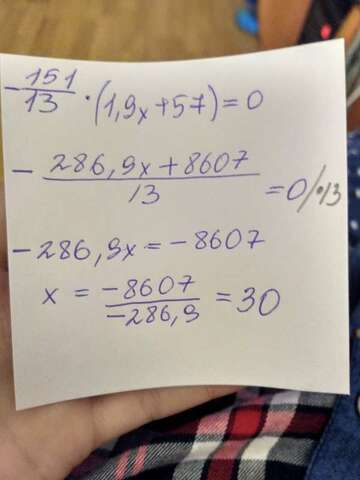 -151/13 · (1,9x+57)=0
- 286,9x+8607/13 =0/·13
-286,9x=-8607
x = -8607/-286,9 = 30